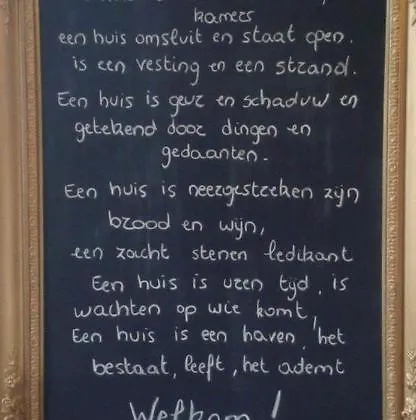 kamers
een huis omsluit en staat open.
is een vesting en een strand.
Een huis is geur en schaduw en
getekend door dingen en
gedaanten.
Een huis is neergestreken zijn
brood en wijn,
een zacht stenen ledikant
Een huis is uren tijd, is
wachten op wie komt,
Een huis is een haven, het
bestaat, leeft, het ademt
Welkom!